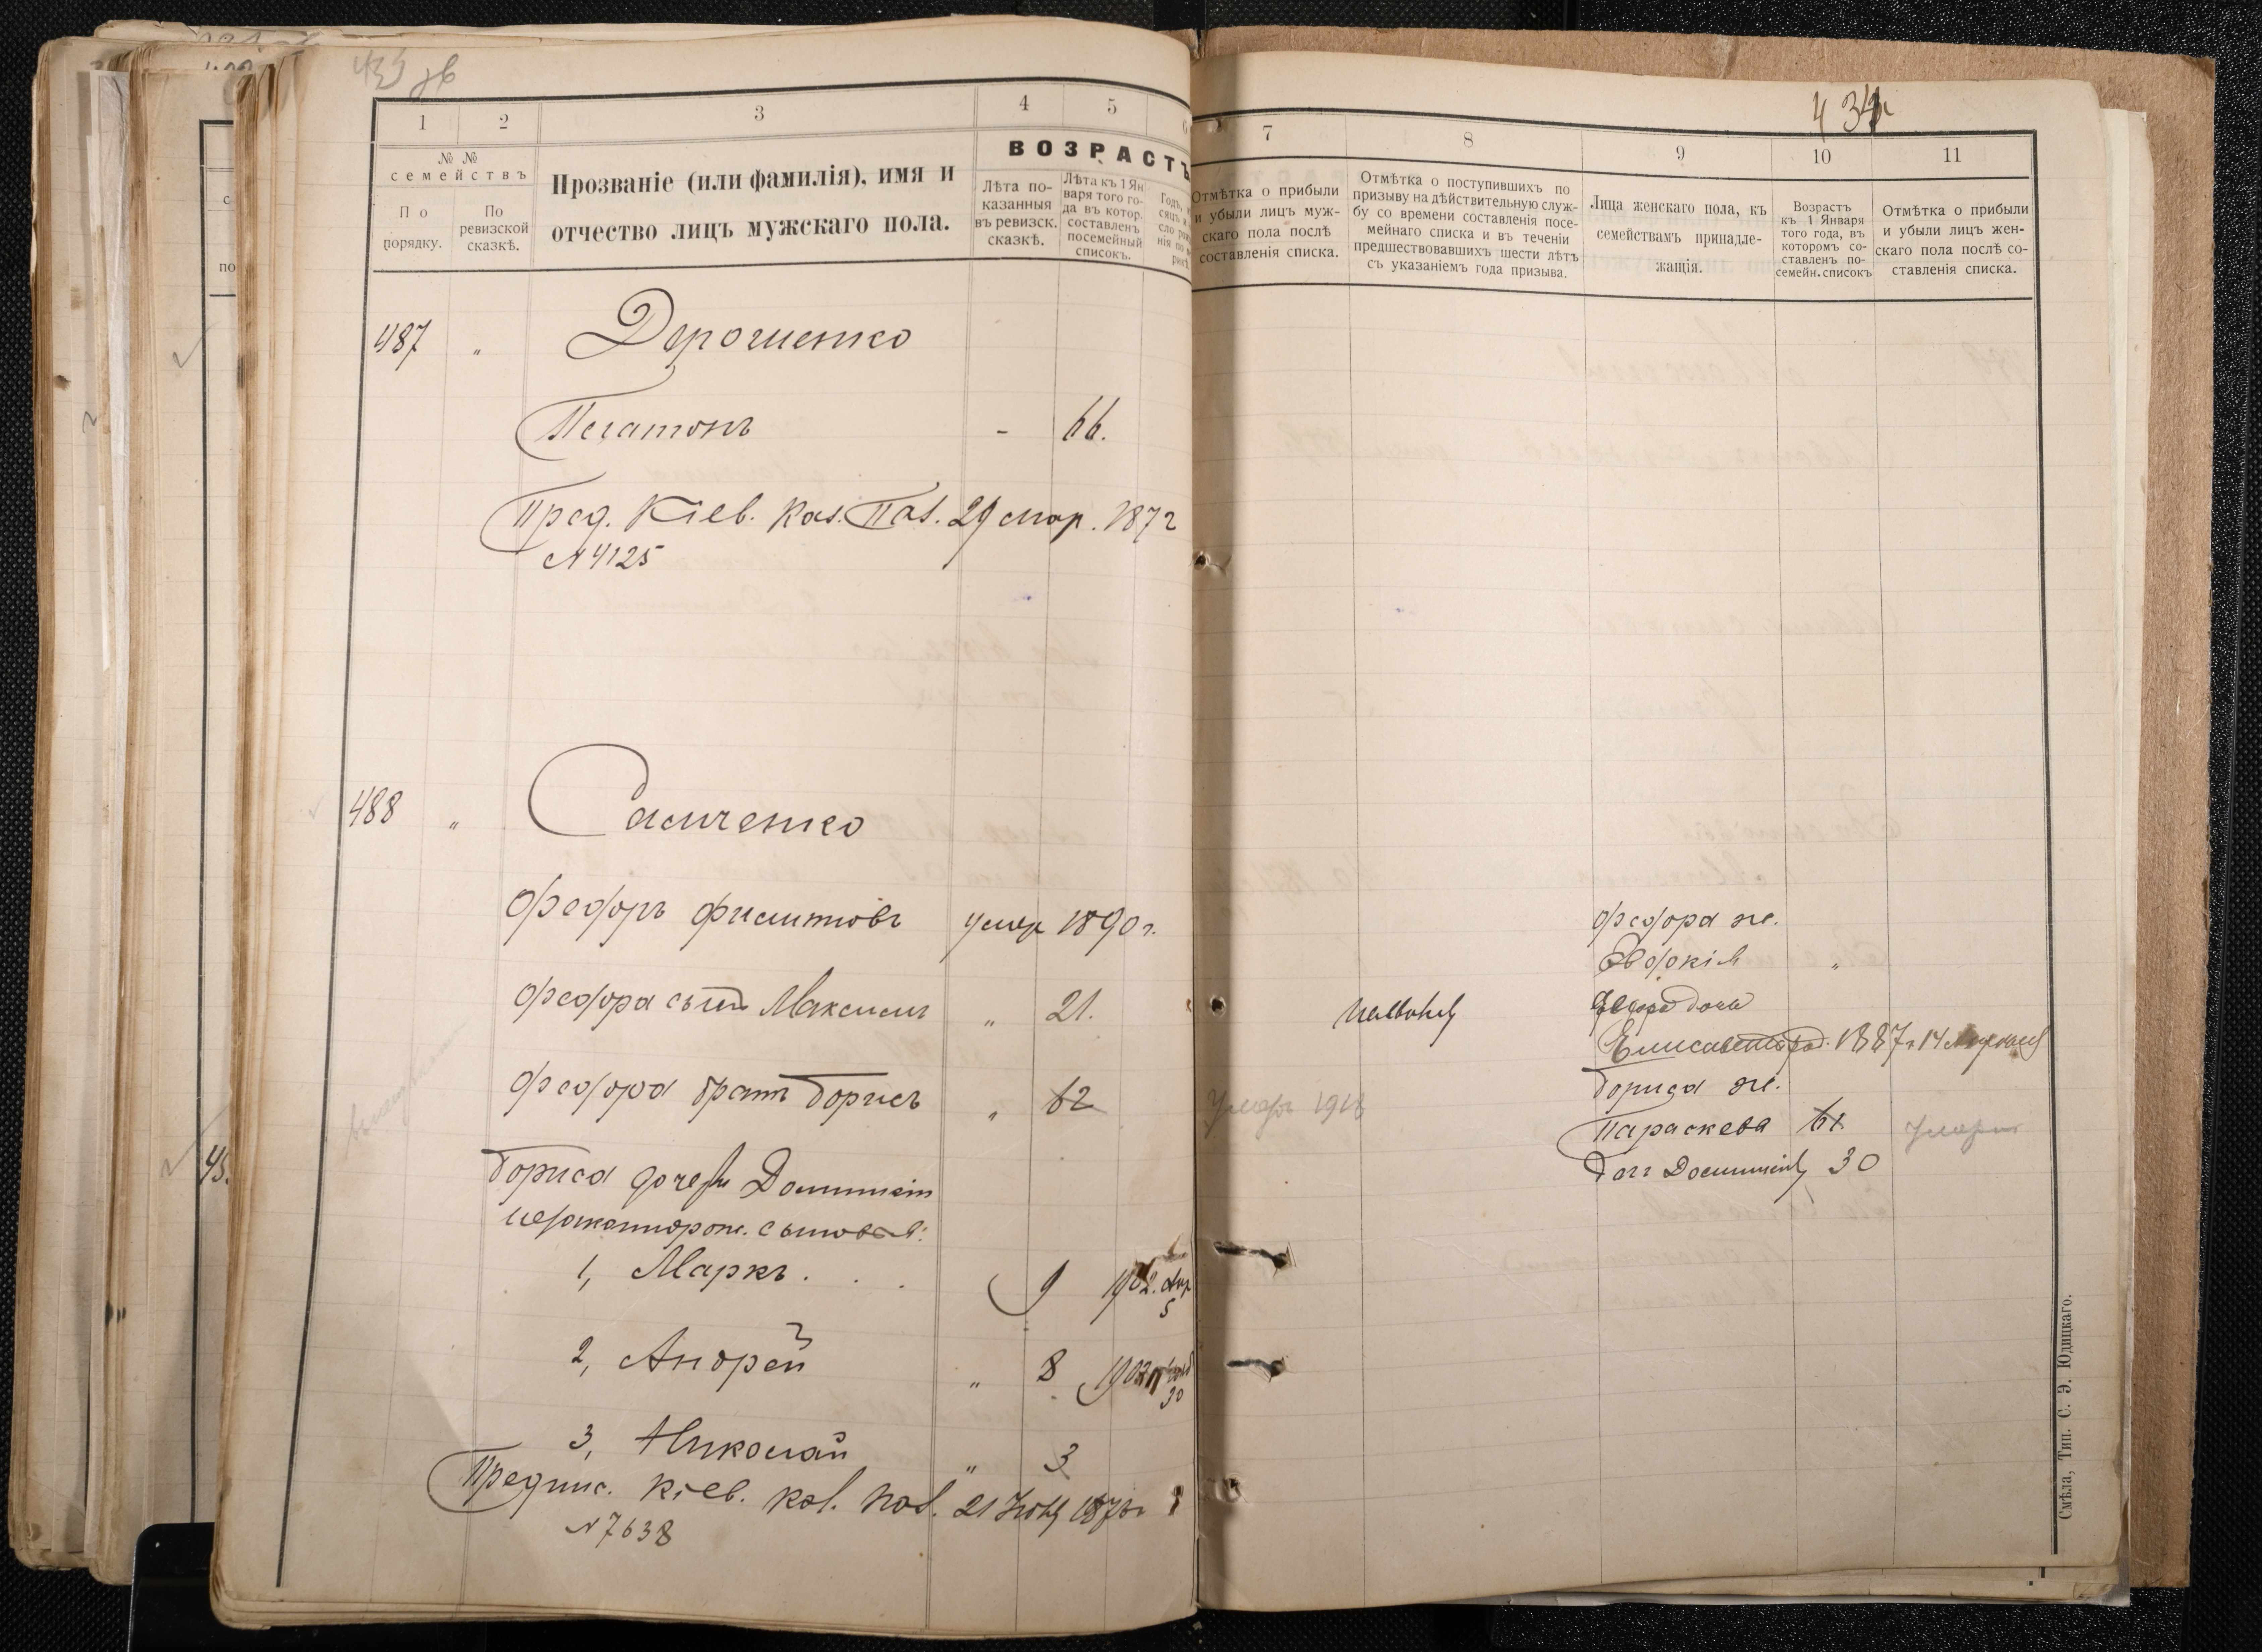 433 зв
1
2
3
4
5
№ №
семействъ
По порядку.
По ревизской сказкѣ.
Прозваніе (или фамилія), имя и
отчество лицъ мужскаго пола.
ВОЗРАСТЪ
Лѣта показанныя въ ревизск. сказкѣ.
Лѣта къ 1 Января того года въ котор. составленъ посемейный списокъ.
487 "
Плотонъ - 66.
Пред. Кіев. Каз. Пал. 29 мар. 1872
№ 4125
488 " Самченко
Федоръ Филиповъ умер 1890 г.
Федора сынъ Максимъ " 21.
Федора братъ Борисъ " 62
Бориса дочери
сыновья:
1, Маркъ . . . 9 1902.
5
2, Андрей " 8
30
3, Николай " 3
Предпис. Кіев. Каз. Пал. 21
№ 7638
434
7
8
9
10
11
Отмѣтка о прибыли
и убыли лицъ муж-
скаго пола послѣ
составленія списка.
Отмѣтка о поступившихъ по
призыву на дѣйствительную служ-
бу со времени составленія посе-
мейнаго списка и въ теченіи
предшествовавшихъ шести лѣтъ
съ указаніемъ года призыва.
Лица женскаго пола, къ
семействамъ принадле-
жащія.
Возрастъ
къ 1 Января
того года, въ
которомъ со-
ставленъ по-
семейн. списокъ
Отмѣтка о прибыли
и убыли лицъ жен-
скаго пола послѣ со-
ставленія списка.
Федора ж.
Евдокія "
дочь
Елисавета род. 1887 г. 14
Умеръ
Бориса ж.
Параскева 61 Умерла
30
Смѣла, Тип. С. Э. Юдицкаго.